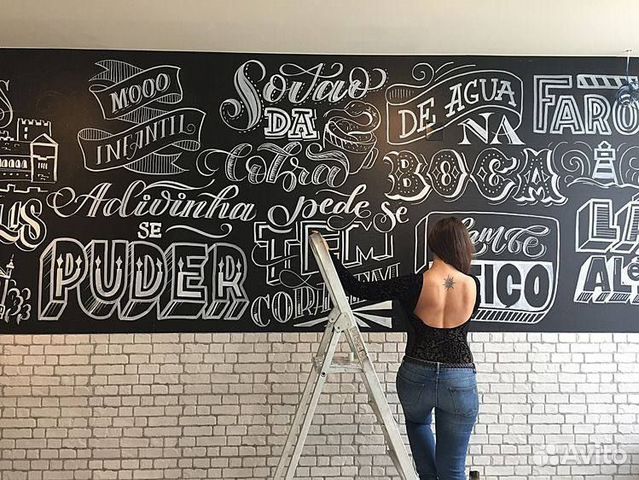 MOOO
INFANTIL
Sorvão
DA
Cobra
DE AGUA
NA
BOCA
FARO
Adivinha
SE
PUDER
pede se
TEM
LA
AL
Avito